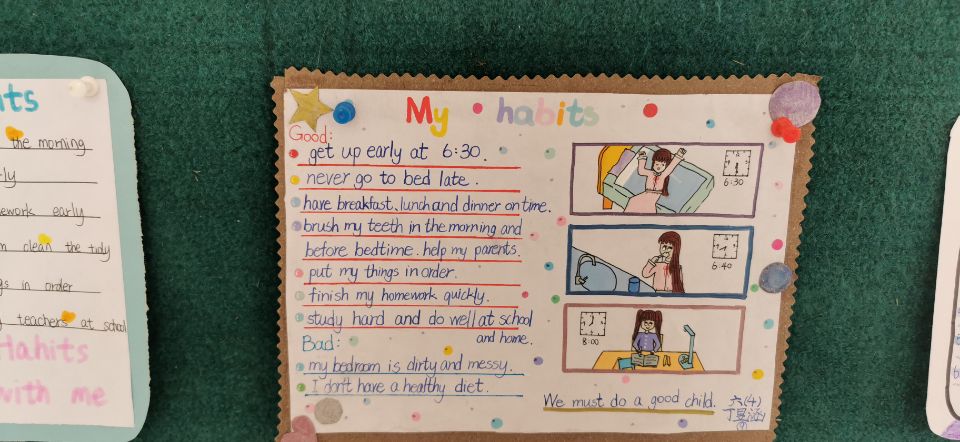 its
the morning
ly
ework early
clean the tidy
gs in order
teachers at school
Hahits
with me
My habits
Good:
get up early at 6:30.
never go to bed late.
have breakfast、lunch and dinner on time.
brush my teeth in the morning and
before bedtime. help my parents.
put my things in order.
finish my homework quickly.
study hard and do well at school
and home.
Bad:
my bedroom is dirty and messy.
I don't have a healthy diet.
6:30
6:40
8:00
We must do a good child.
六(4)